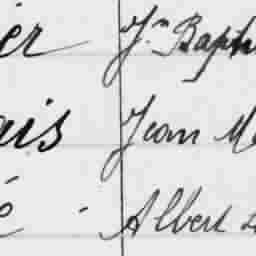 ier Jⁿ Bapt
ais Jean Ma
é Albert